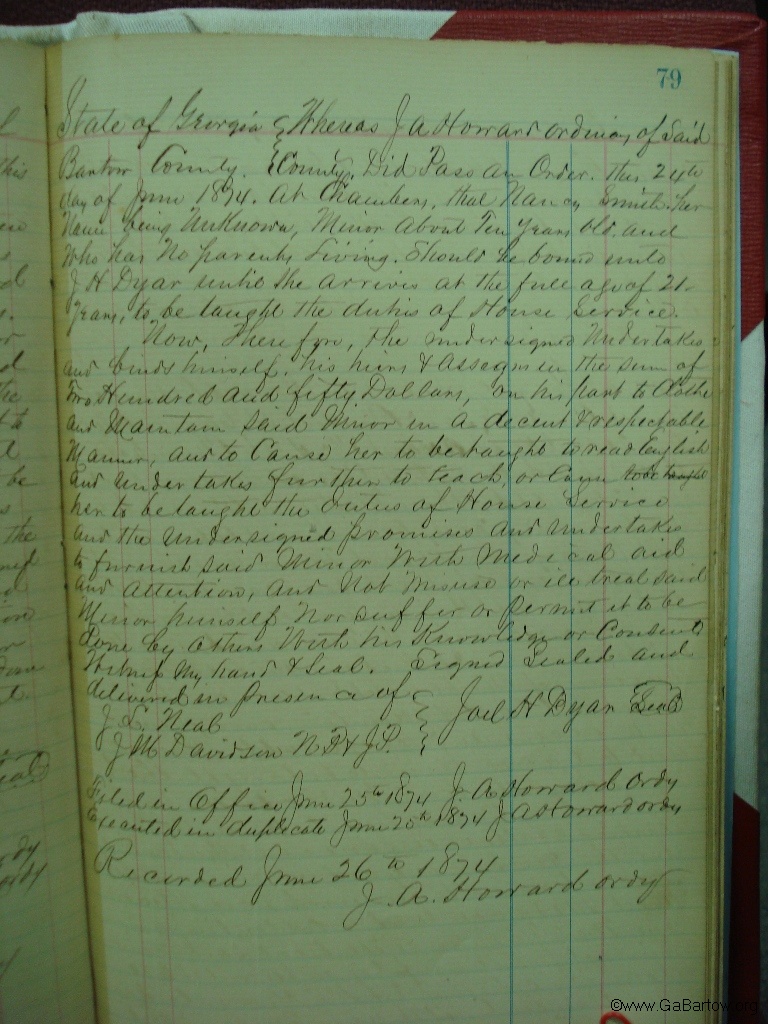 79
State of Georgia } Whereas J A Howard ordinary of Said
Bartow County. } County. Did Pass an Order. this 24th
day of June 1874. At Chambers, that Nancy Smith. her
Name being Unknown, Minor About Ten years old. and
Who has No parents Living. Should be bound unto
J H Dyar until She arrives at the full age of 21-
Years, to be taught the duties of House Service.
Now, Therefore, the undersigned Undertakes
and binds himself. his heirs & Assegns in the sum of
Two Hundred and fifty Dollars, on his part to Clothe
and Maintain Said Minor in a decent & respectable
Manner, and to Cause her to be taught to read English
and undertakes further to teach, or Cause to be taught
her to be taught the duties of House Service
and the Undersigned promises and Undertakes
to furnish Said Minor With Medical aid
and Attention, and Not Misuse or ill treat said
Minor himself Nor Suffer or Permit it to be
done by others With his Knowledge or Consent
Witness My hand & Seal. Signed Sealed and
delivered in Presence of }
J. L. Neal } Joel H Dyar Seal
J M Davidson N.P & J.P. }
Filed in Office June 25th 1874 J. A. Howard Ordy
Executed in duplicate June 25th 1874 J A Howard ordy
Recorded June 26th 1874
J. A. Howard ordy
©www.GaBartow.org